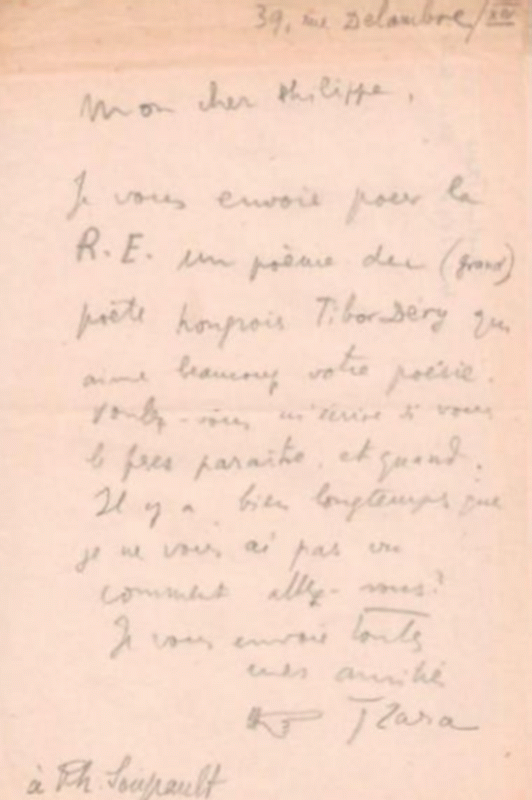 39, rue Delambre / XIV
Mon cher Philippe,
Je vous envoie pour la
R.E. un poème du (grand)
poète hongrois Tibor Déry qui
aime beaucoup votre poésie.
Voulez-vous m'écrire si vous
le ferez paraître, et quand.
Il y a bien longtemps que
je ne vous ai pas vu
comment allez-vous?
Je vous envoie toutes
mes amitiés
Tzara
à Ph. Soupault